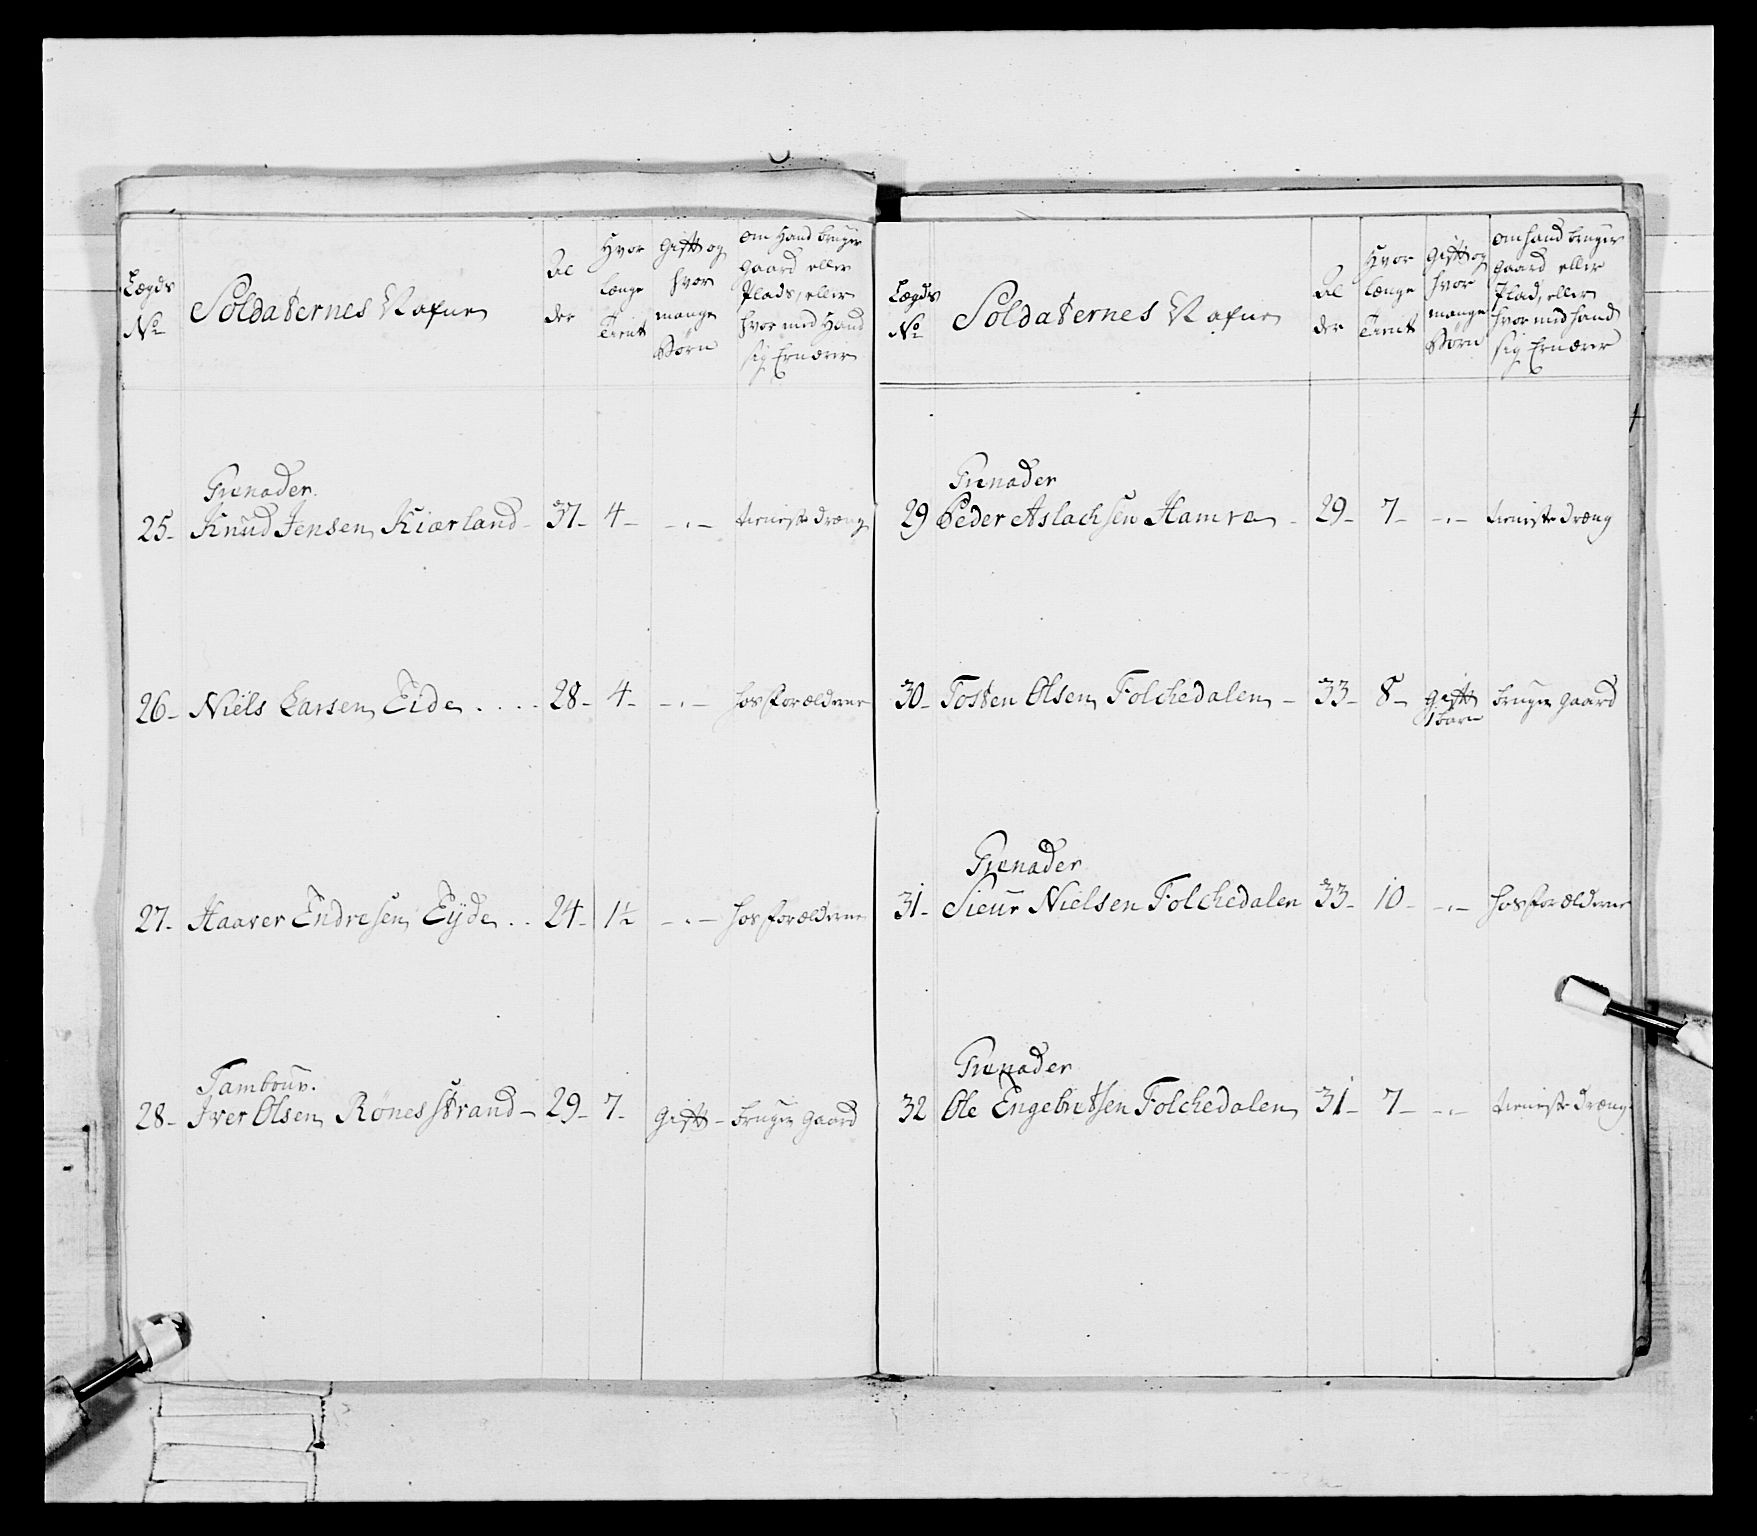 Lægds
No
Soldaternes Nafne
Al
der
Hvor
længe
Tient
Gift og
hvor
mange
Børn
om Hand bruger
Gaard eller
Plads, eller
hvor med Hand
sig Ernærer
Grenader.
25- Knud Jensen Kiærland- 37- 4- -.- tieniste dræng
26- Niels Larsen Eide .... 28- 4- -.- hos forælderne
27- Haaver Endresen Eyde .. 24- 1½ -.- hos forælderne
Tambour.
28- Iver Olsen Rønesstrand- 29- 7- Gift- bruger Gaard
Lægds
No
Soldaternes Nafne
Al
der
Hvor
længe
Tient
Gift og
hvor
mange
Børn
om hand bruger
Gaard eller
Plad, eller
hvor med hand
sig Ernærer
Grenader
29 Peder Aslachsen Hamre - 29- 7- -.- tieniste dræng
30- Tosten Olsen Folchedalen - 33- 8- Gift bruger Gaard
1 barn
Grenader
31- Sieur Nielsen Folchedalen 33- 10- -.- hos forælderne
Grenader
32 Ole Engebretsen Folchedalen 31- 7- -.- tieniste dræng